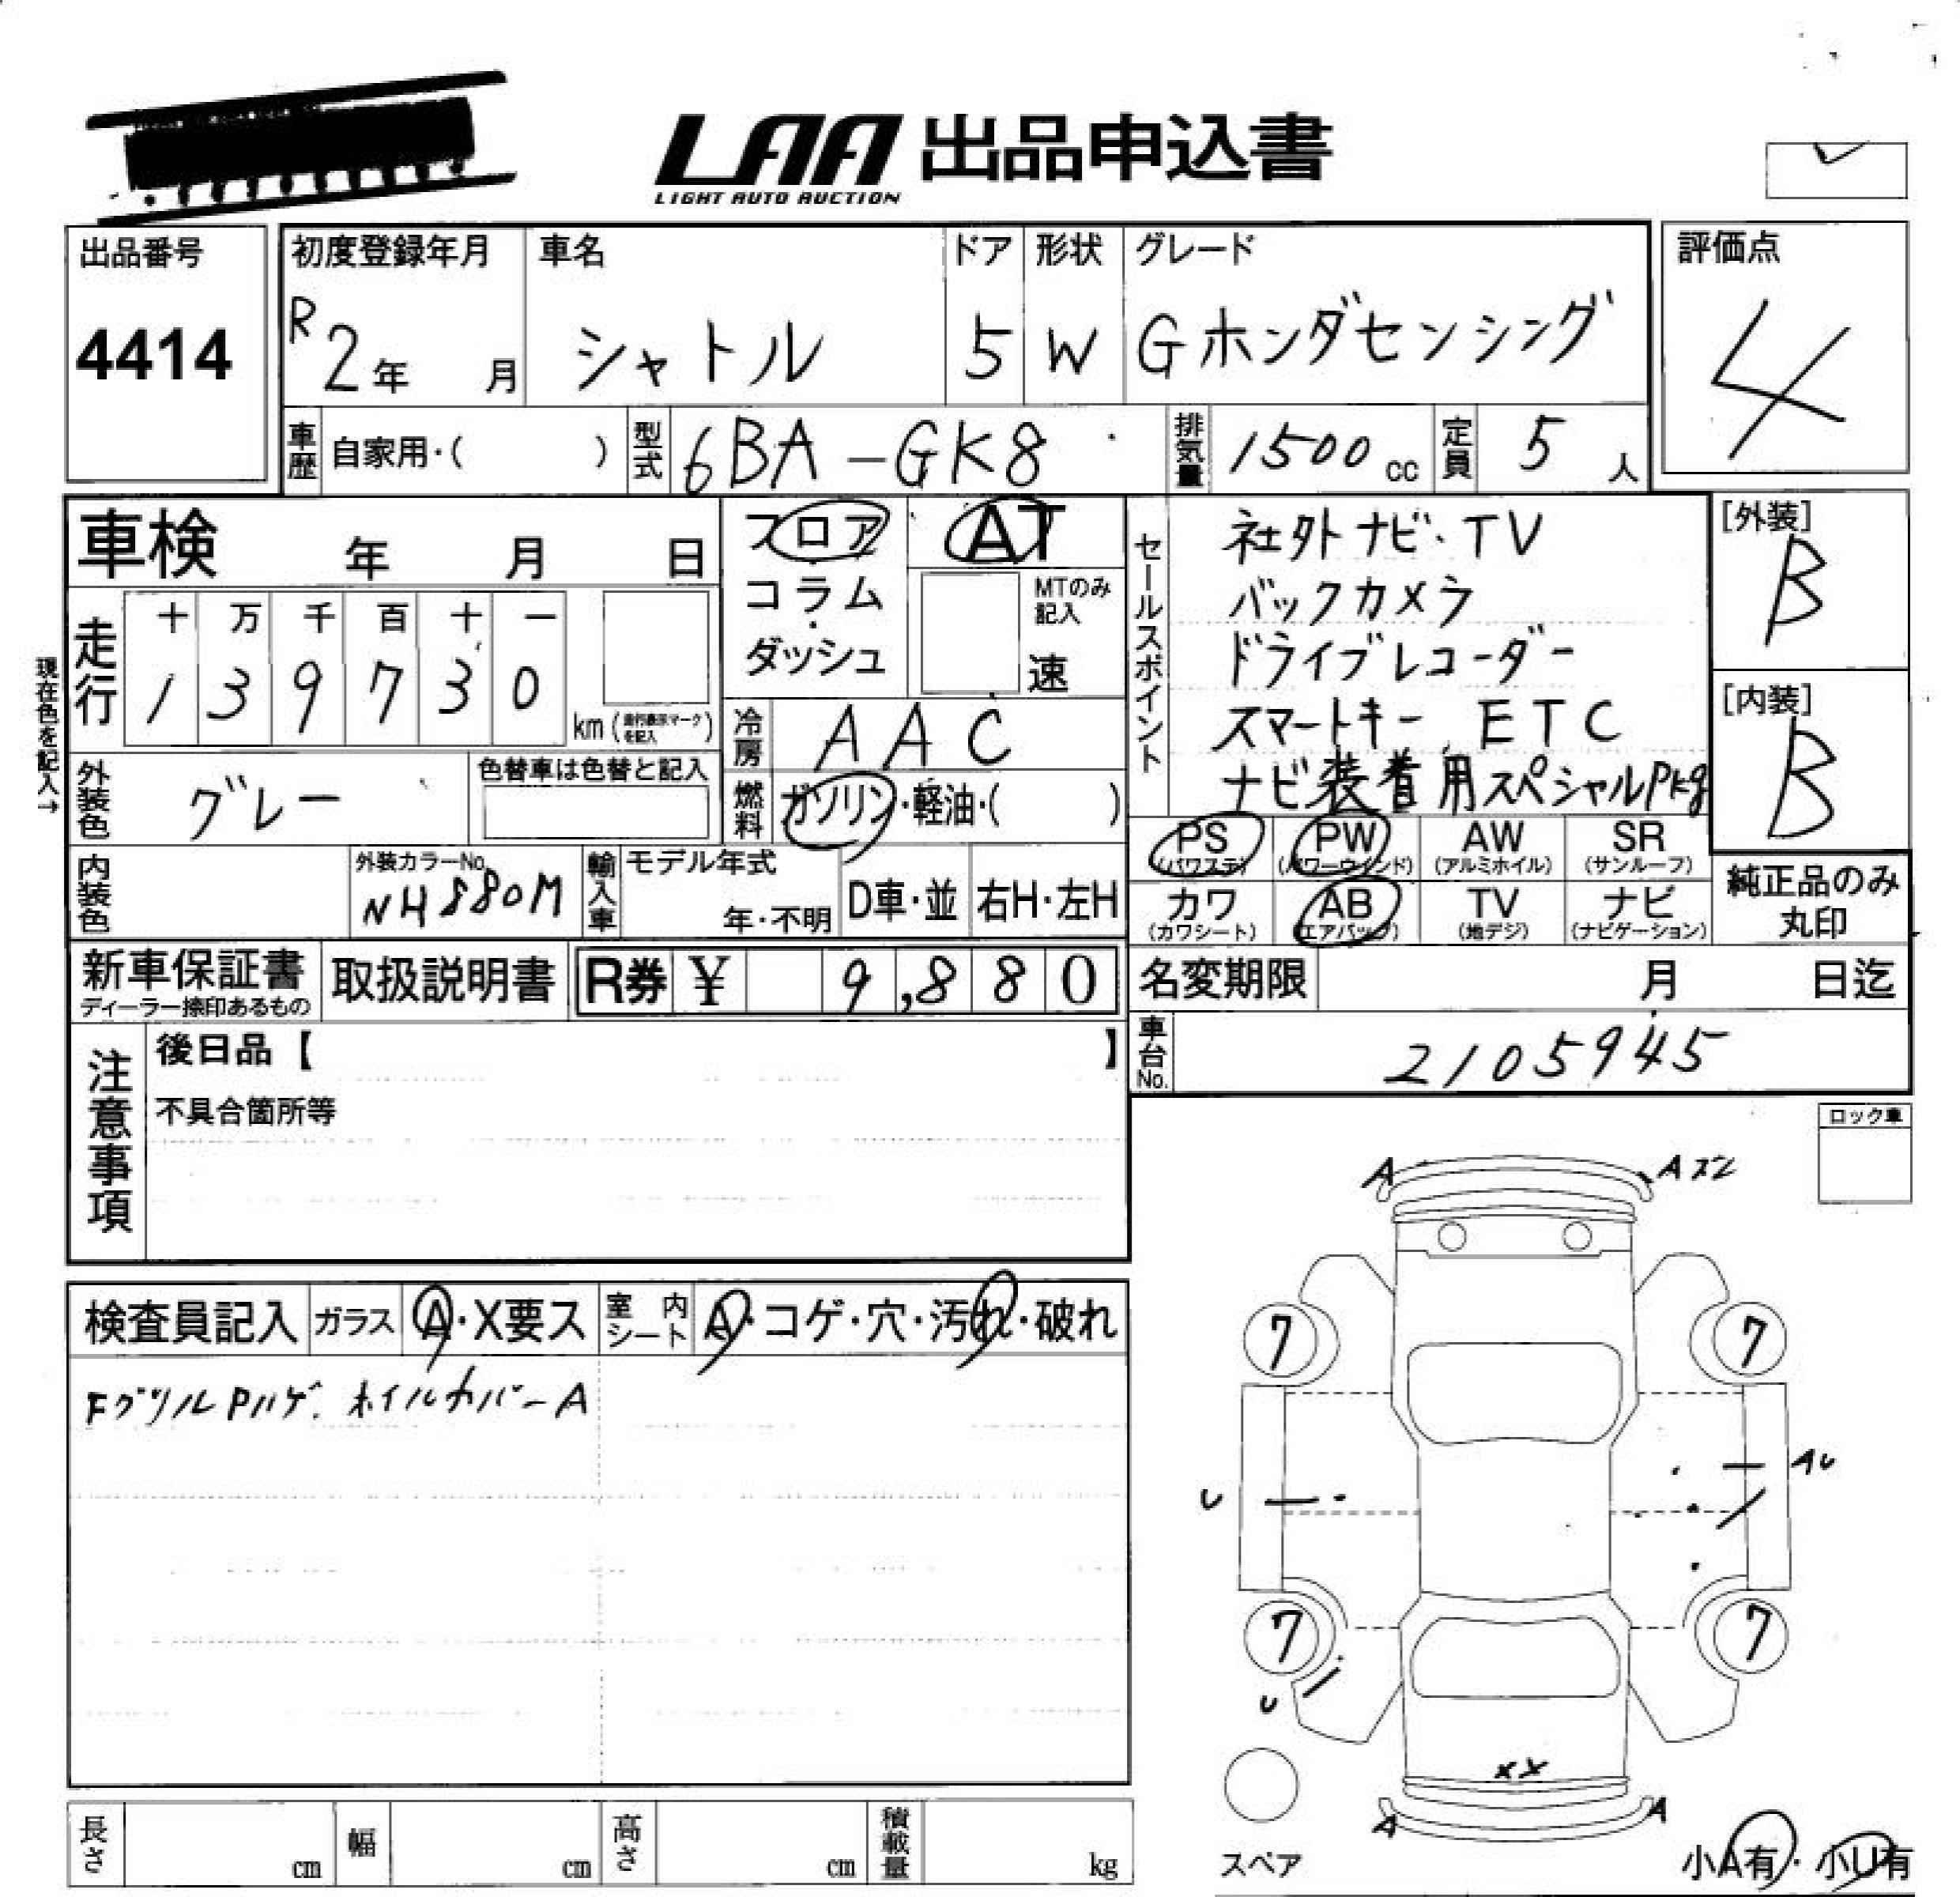 LAA 出品申込書
LIGHT AUTO AUCTION
出品番号
4414
初度登録年月
R2年 月
車名
シャトル
ドア
5
形状
W
グレード
Gホンダセンシング
評価点
4
車歴 自家用・( )
型式 6BA-GK8
排気量 1500 cc
定員 5 人
車検 年 月 日
フロア
コラム
・
ダッシュ
AT
MTのみ
記入
速
セールスポイント
社外ナビ・TV
バックカメラ
ドライブレコーダー
スマートキー ETC
ナビ装着用スペシャルPkg
[外装]
B
[内装]
B
現在色を記入→
走行
十 万 千 百 十 一
1 3 9 7 3 0
km (走行表示マークを記入)
冷房 AAC
燃料 ガソリン・軽油・( )
外装色 グレー
色替車は色替と記入
内装色
外装カラーNo.
NH880M
輸入車
モデル年式
年・不明
D車・並
右H・左H
PS (パワステ)
PW (パワーウインド)
AW (アルミホイル)
SR (サンルーフ)
カワ (カワシート)
AB (エアバッグ)
TV (地デジ)
ナビ (ナビゲーション)
純正品のみ
丸印
新車保証書
ディーラー捺印あるもの
取扱説明書
R券 ¥ 9,880
名変期限 月 日迄
車台No. 2105945
注意事項
後日品【 】
不具合箇所等
ロック車
検査員記入
ガラス A・X要ス
室内シート A・コゲ・穴・汚れ・破れ
FグリルPハゲ. ホイルカバーA
A
AXZ
7
7
AU
U
7
7
U
XX
A
A
スペア
小A有・小U有
長さ cm
幅 cm
高さ cm
積載量 kg